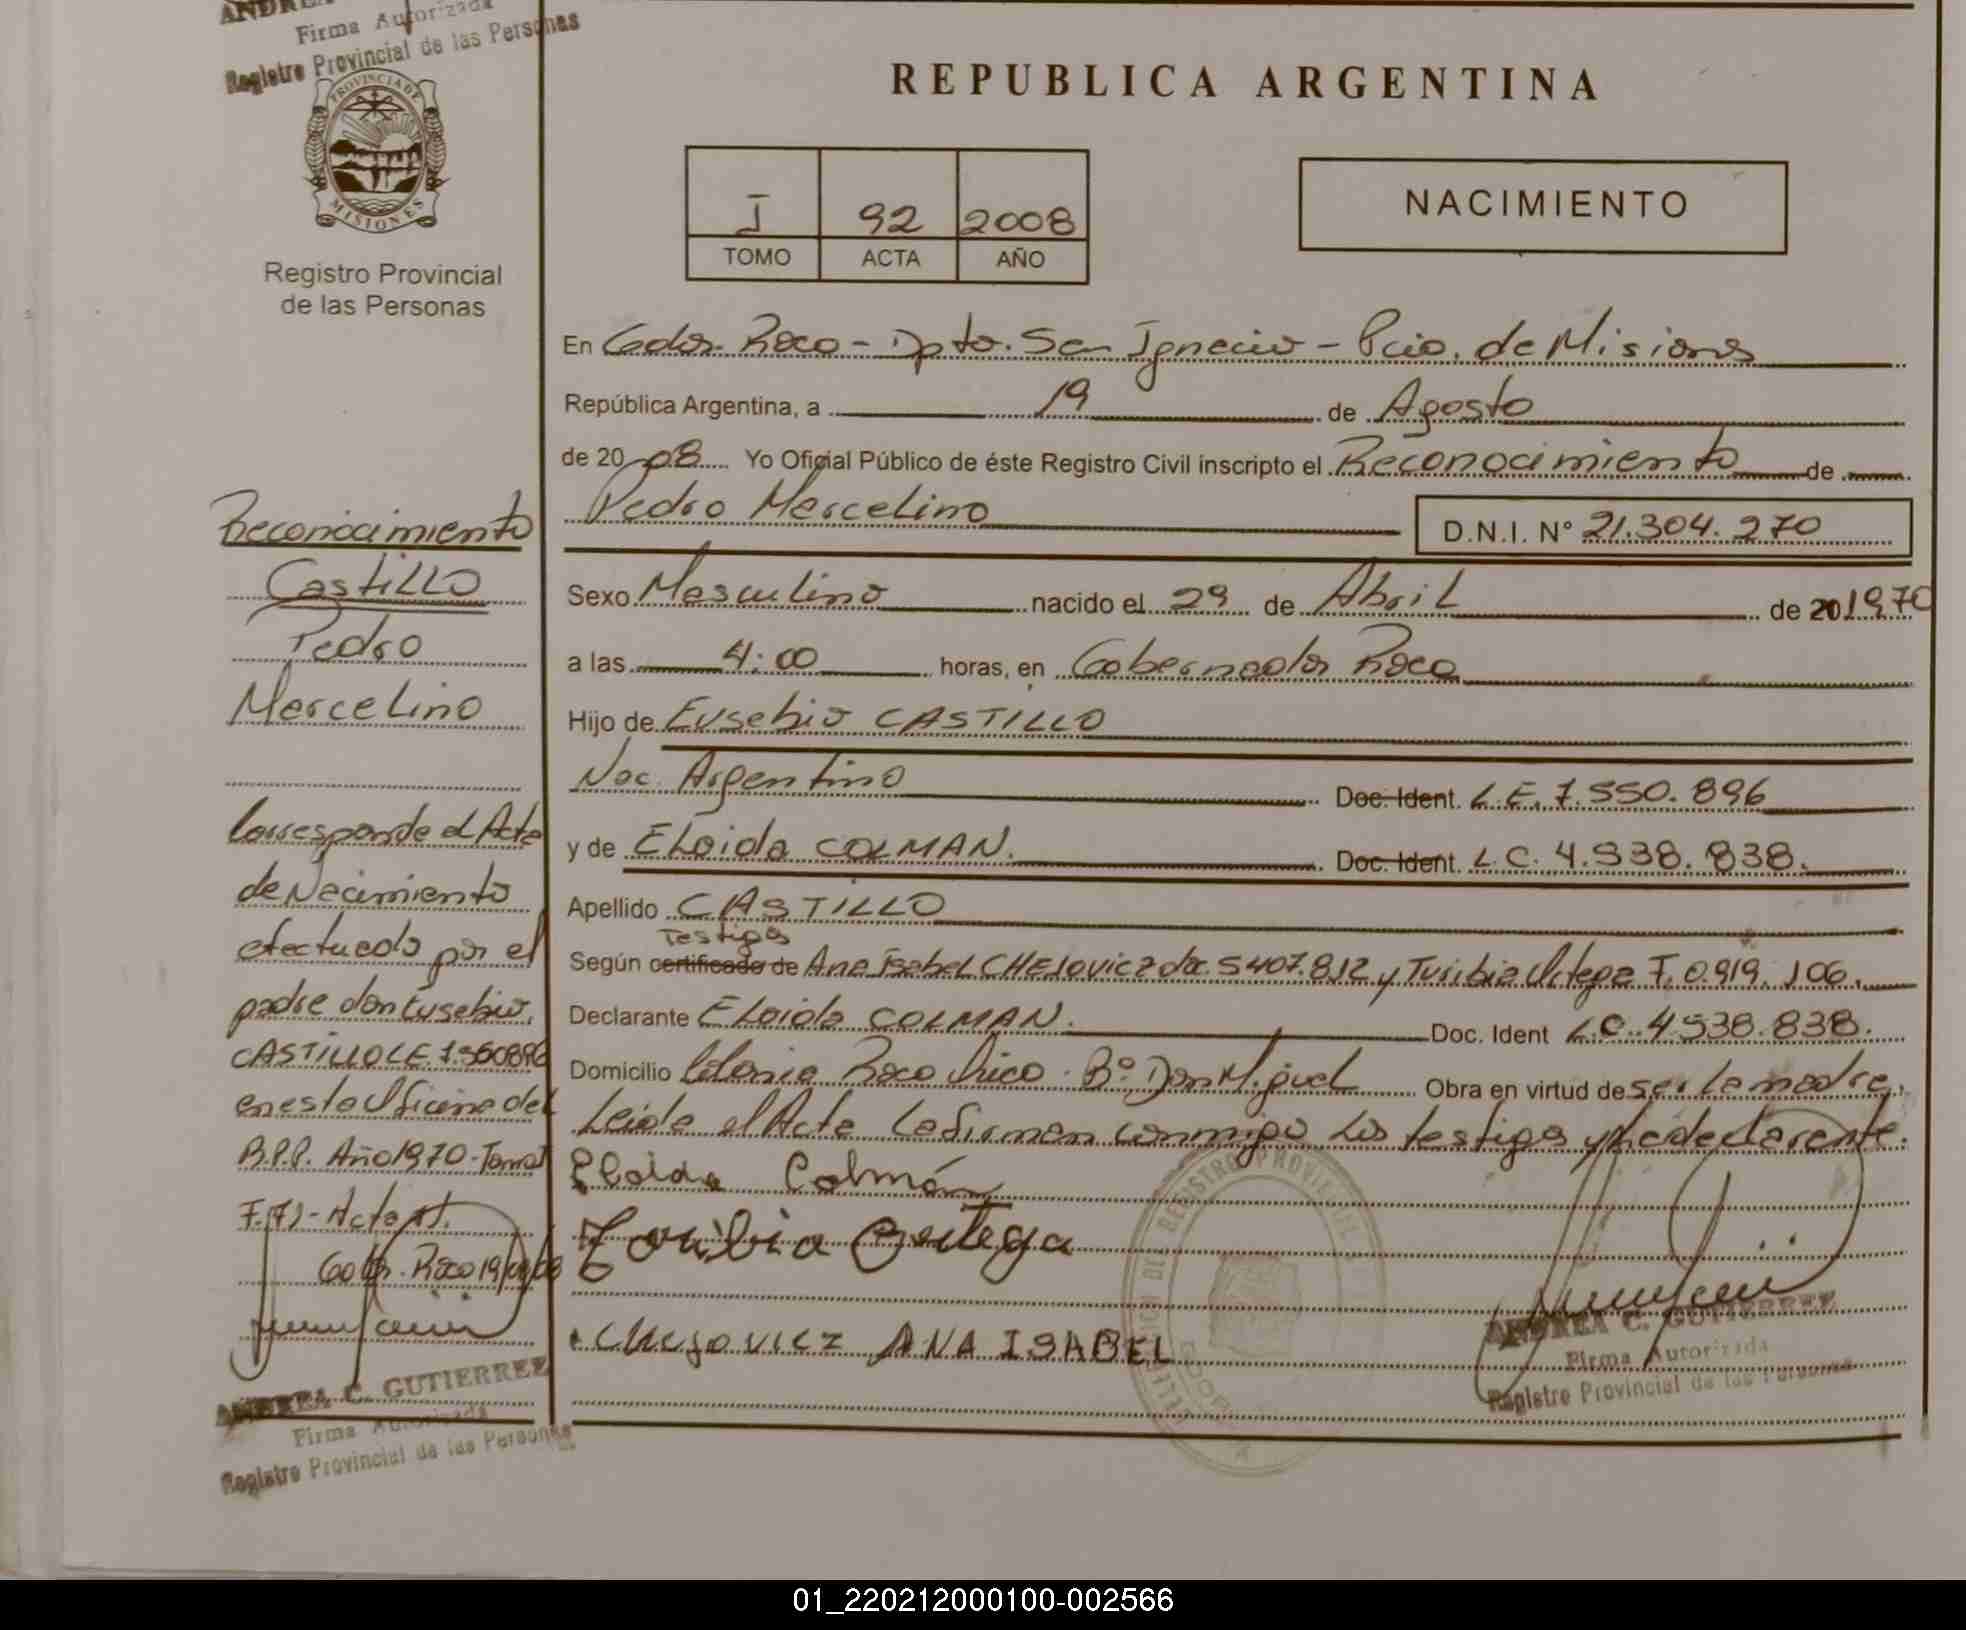 ANDREA
Firma Autorizada
Registro Provincial de las Personas
PROVINCIA DE
MISIONES
Registro Provincial
de las Personas
REPUBLICA ARGENTINA
I 92 2008
TOMO ACTA AÑO
NACIMIENTO
En Gdor. Roca - Dpto. San Ignacio - Pcia. de Misiones
República Argentina, a 19 de Agosto
de 20 08 Yo Oficial Público de éste Registro Civil inscripto el Reconocimiento de
Pedro Marcelino D.N.I. N° 21.304.270
Sexo Masculino nacido el 29 de Abril de 20 1970
a las 4:00 horas, en Gobernador Roca
Hijo de Eusebio CASTILLO
Nac. Argentino Doc. Ident. L.E. 7.550.896
y de Eloida COLMAN. Doc. Ident. L.C. 4.938.838.
Apellido CASTILLO
Testigos
Según certificado de Ana Isabel CHEJOVICZ doc. 5407.812 y Turibia Ortega F. 0.919.106.
Declarante Eloida COLMAN. Doc. Ident L.C. 4.938.838.
Domicilio Colonia Roca Chico. B° Don Miguel Obra en virtud de ser la madre.
Leida el Acta La firman conmigo los testigos y la declarante.
Eloida Colmán
Toribia Ortega
CHEJOVICZ ANA ISABEL
ANDREA C. GUTIERREZ
Firma Autorizada
Registro Provincial de las Personas
Reconocimiento
Castillo
Pedro
Marcelino
Corresponde al Acta
de Nacimiento
efectuado por el
padre don Eusebio,
CASTILLO LE. 7.560896
en esta Oficina del
R.P.P. Año 1970 - Tomo I
Gdor. Roca 19/08/08
ANDREA C. GUTIERREZ
Firma Autorizada
Registro Provincial de las Personas
01_220212000100-002566